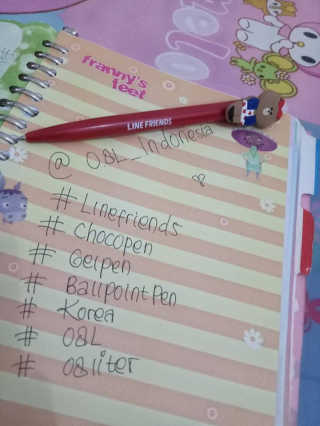 franny's
feet
LINE FRIENDS
@ 08L_Indonesia
# Linefriends
# Chocopen
# Gelpen
# Ballpoint Pen
# Korea
# 08L
# 08liter